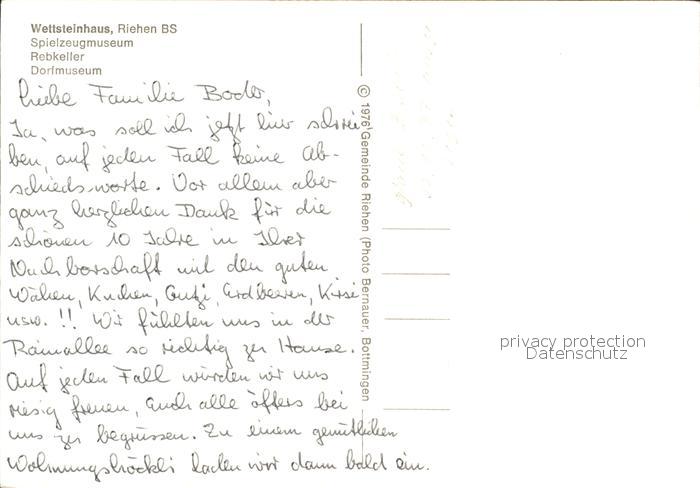 Wettsteinhaus, Riehen BS
Spielzeugmuseum
Rebkeller
Dorfmuseum
Liebe Familie Boder,
Ja, was soll ich jetzt hier schrei-
ben, auf jeden Fall keine Ab-
schiedsworte. Vor allem aber
ganz herzlichen Dank für die
schönen 10 Jahre in Ihrer
Nachbarschaft mit den guten
Wähen, Kuchen, Gutzi, Erdbeeren, Kirsi
usw. !! Wir fühlten uns in der
Rainallee so richtig zu Hause.
Auf jeden Fall würden wir uns
riesig freuen, Euch alle öfters bei
uns zu begrüssen. Zu einem gemütlichen
Wohnungshöckli laden wir dann bald ein.
© 1976 Gemeinde Riehen (Photo Bernauer, Bottmingen
privacy protection
Datenschutz